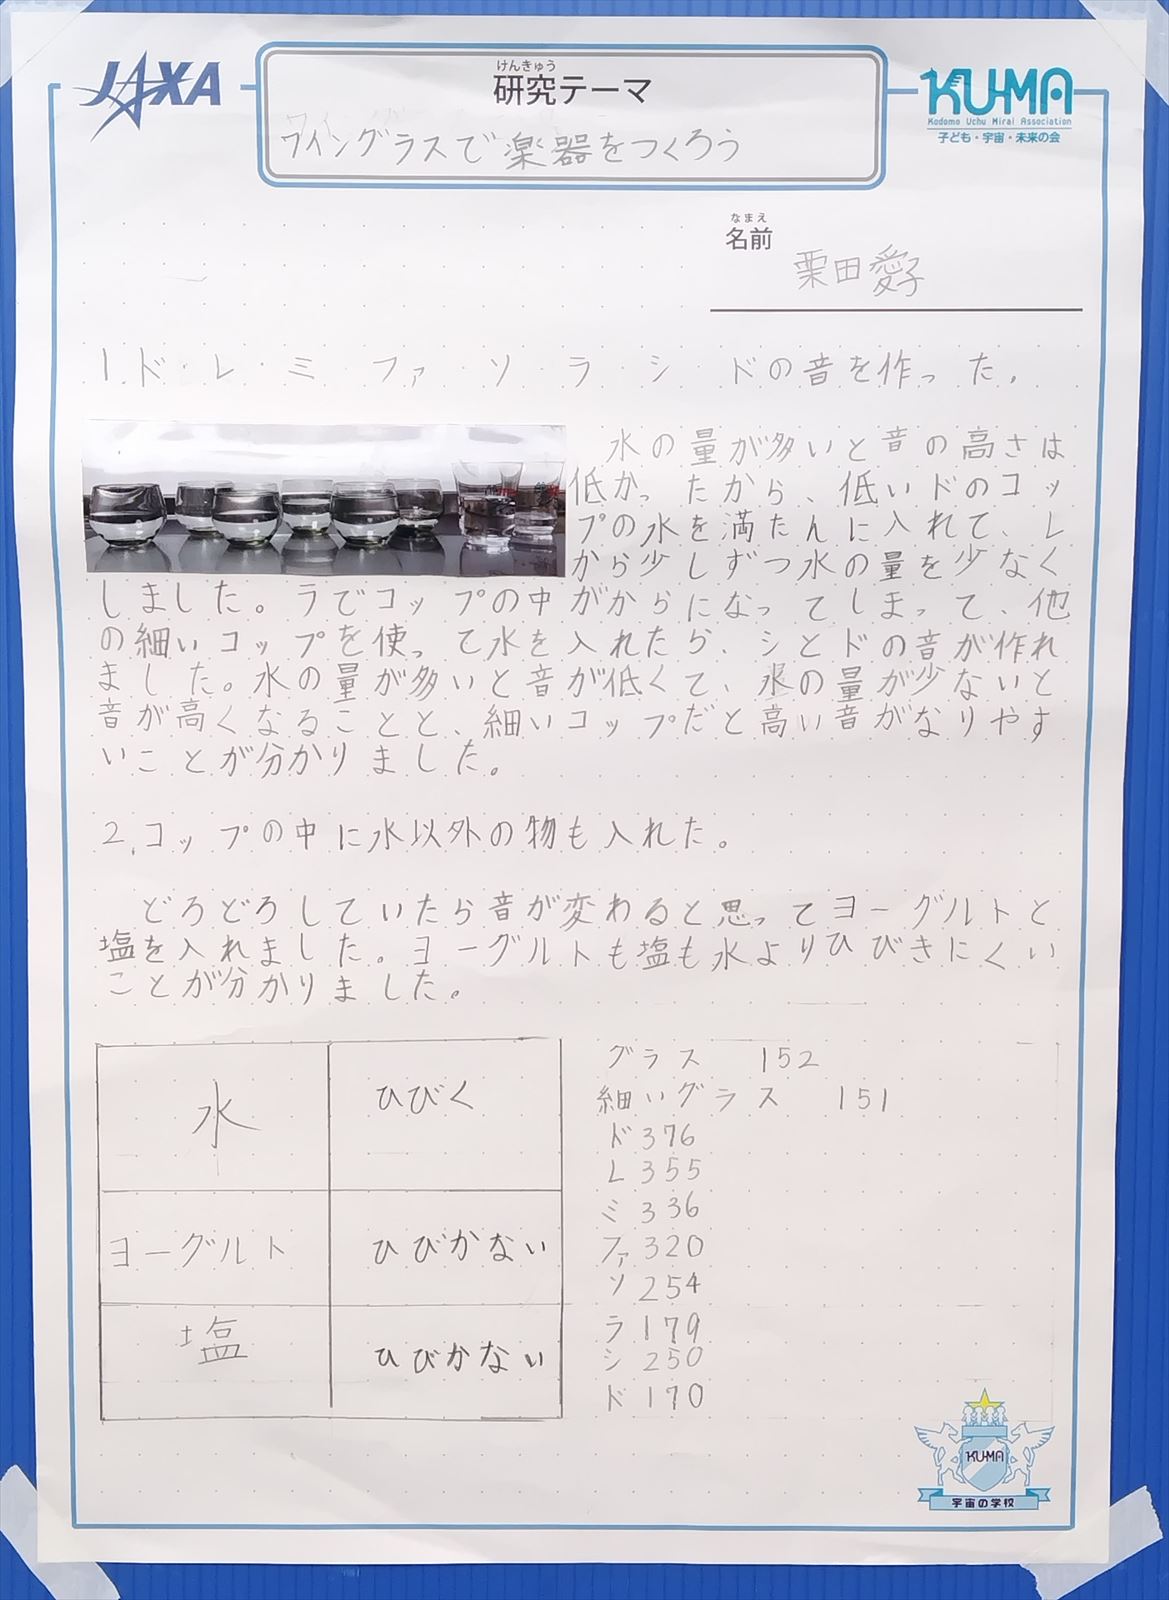 JAXA
けんきゅう
研究テーマ
ワイングラスで楽器をつくろう
KU-MA
Kodomo Uchu Mirai Association
子ども・宇宙・未来の会
なまえ
名前
栗田愛子
1.ド・レ・ミ・ファ・ソ・ラ・シ・ドの音を作った。
水の量が多いと音の高さは
低かったから、低いドのコッ
プの水を満たんに入れて、レ
から少しずつ水の量を少なく
しました。ラでコップの中がからになってしまって、他
の細いコップを使って水を入れたら、シとドの音が作れ
ました。水の量が多いと音が低くて、水の量が少ないと
音が高くなることと、細いコップだと高い音がなりやす
いことが分かりました。
2.コップの中に水以外の物も入れた。
どろどろしていたら音が変わると思ってヨーグルトと
塩を入れました。ヨーグルトも塩も水よりひびきにくい
ことが分かりました。
水 ひびく
ヨーグルト ひびかない
塩 ひびかない
グラス 152
細いグラス 151
ド376
レ355
ミ336
ファ320
ソ254
ラ179
シ250
ド170
KU-MA
宇宙の学校